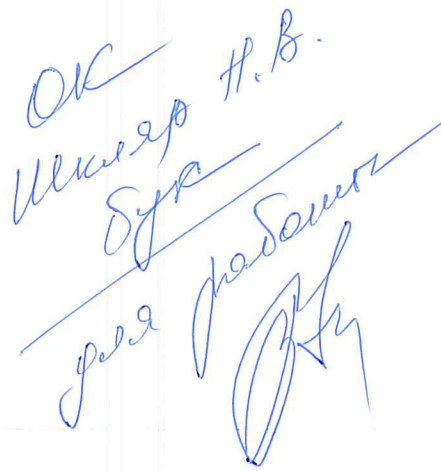 ОК
Шкляр Н.В.
бук
для работы